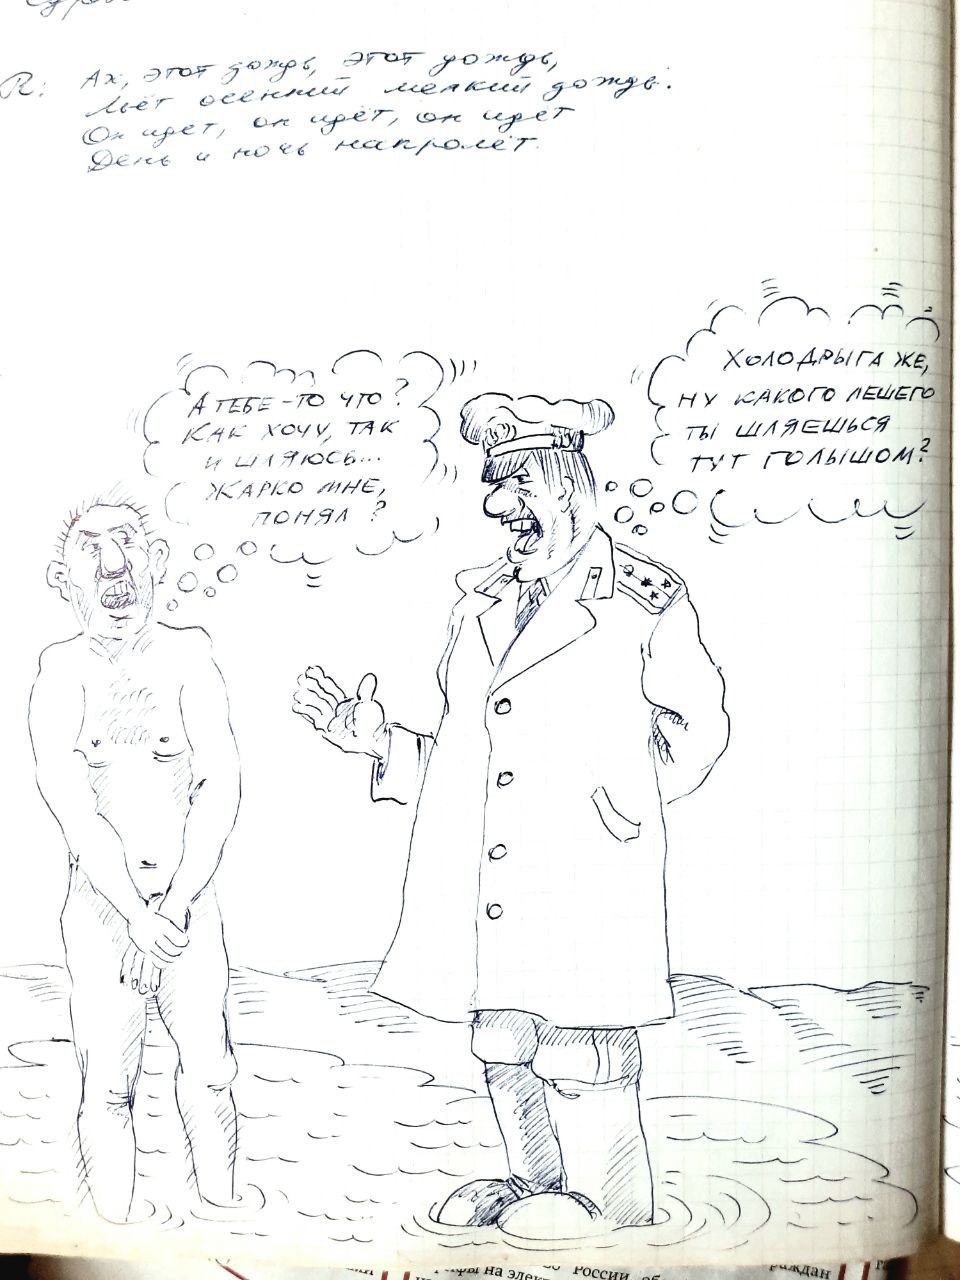 R: Ах, этот дождь, этот дождь,
Льёт осенний мелкий дождь.
Он идёт, он идёт, он идёт
День и ночь напролёт.
ХОЛОДРЫГА ЖЕ,
НУ КАКОГО ЛЕШЕГО
ТЫ ШЛЯЕШЬСЯ
ТУТ ГОЛЫШОМ?
А ТЕБЕ-ТО ЧТО?
КАК ХОЧУ, ТАК
И ШЛЯЮСЬ...
ЖАРКО МНЕ,
ПОНЯЛ?
России
на